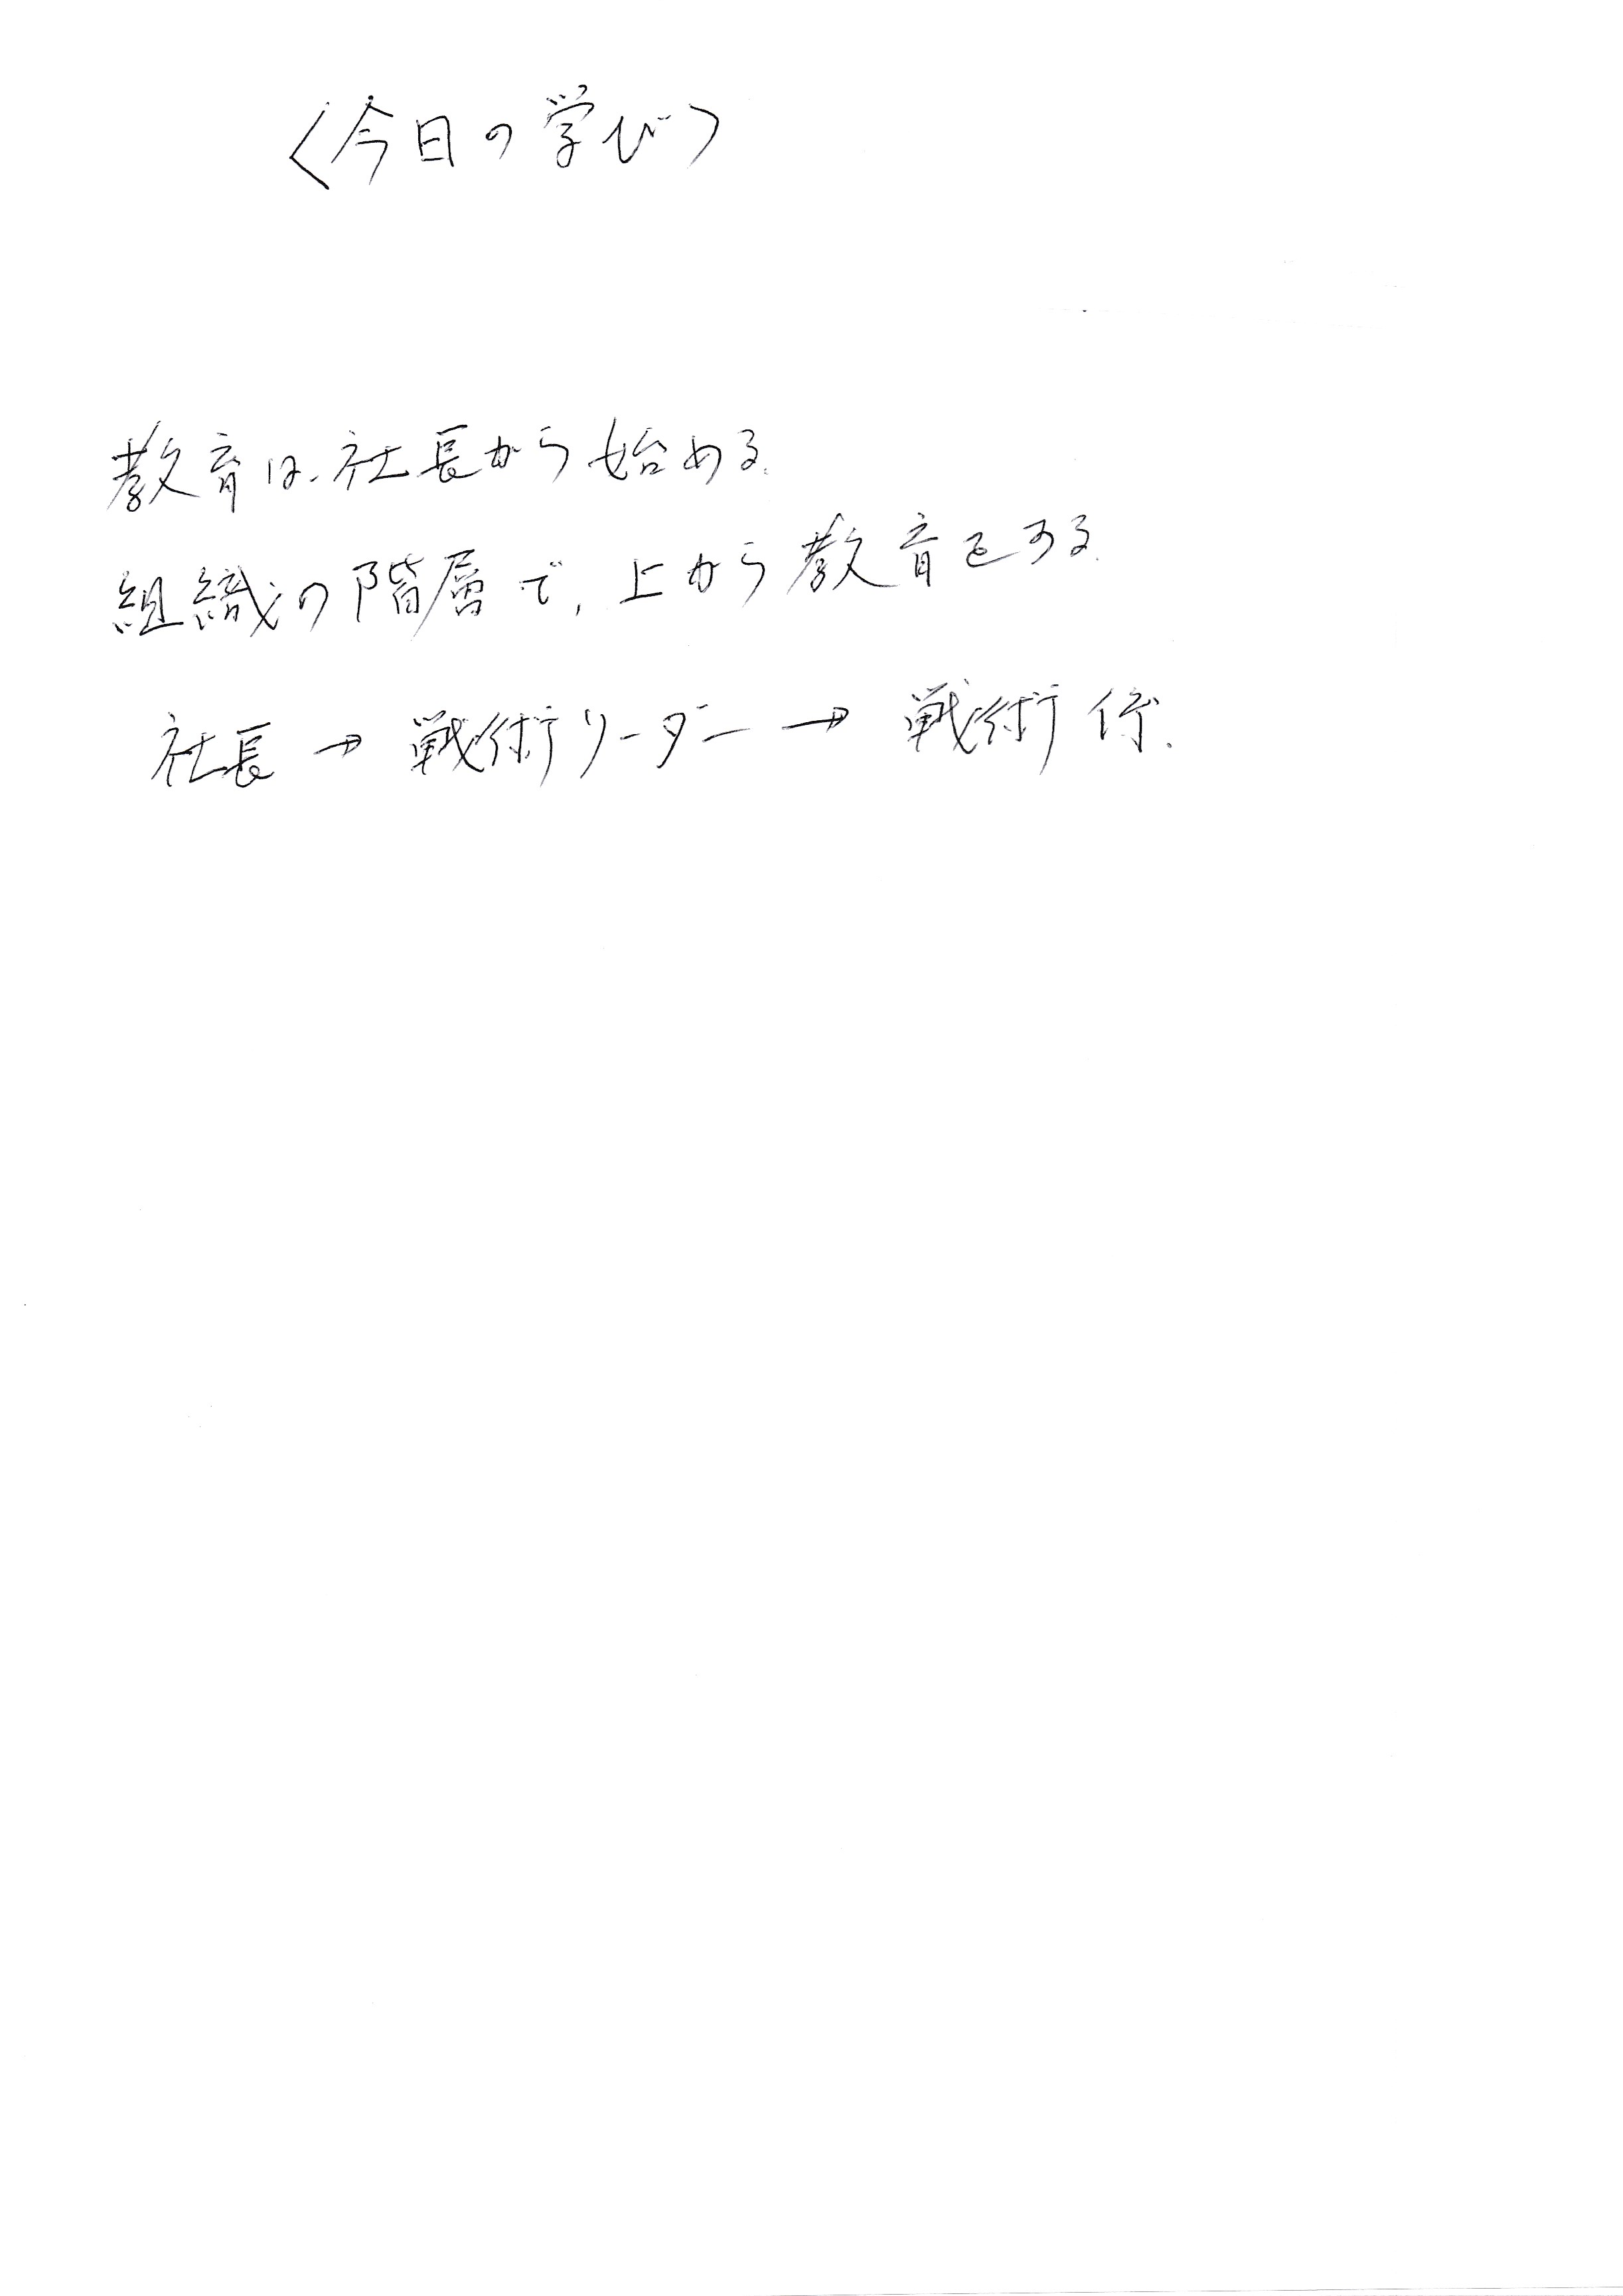 〈今日の学び〉
教育は、社長から始める。
組織の階層で、上から教育をする。
社長→戦術リーダー→戦術係。